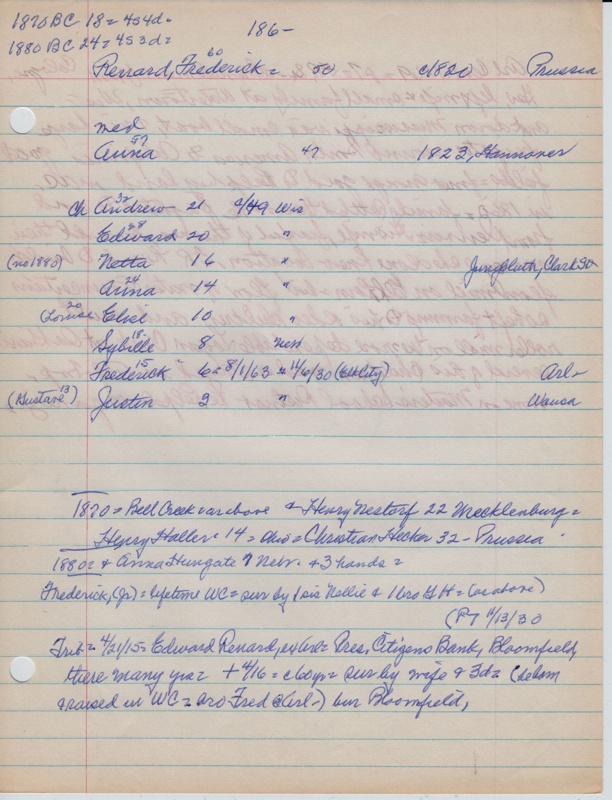 1870 BC 18 = 454d.
1880 BC 24 = 453d =
186-
Renard, Frederick = 60 50 c1820 Prussia
med
Anna 57 47 1823, Hannover
Ch Andrew 32 21 c/49 Wis
Edward 28 20 "
(no 1880) Netta 16 " Jungbluth, Clark St
Anna 24 14 "
(Louise 20 Elise 10 "
Sybille 18- 8 Neb
Frederick 15 6 = 8/1/63 = 4/6/30 (WC City) Arl-
(Gustave 13) Justin 3 " Wausa
1870 = Bell Creek = as above & Henry Nestorf 22 Mecklenburg =
Henry Haller = 14 = Ohio = Christian Hecker 32 - Prussia
1880 = & Anna Hungate 7 Nebr. & 3 hands =
Frederick, (Jr) = lifetime WC = sur by 1 sis Nellie & 1 bro GH = (as above)
(PT 4/13/30
Trib = 4/21/15 = Edward Renard, = Pres, Citizens Bank, Bloomfield,
there many yrs = + 4/16 = c60yr = sur by wife & 3d =
& raised in WC = bro Fred @ Arl-) bur Bloomfield,